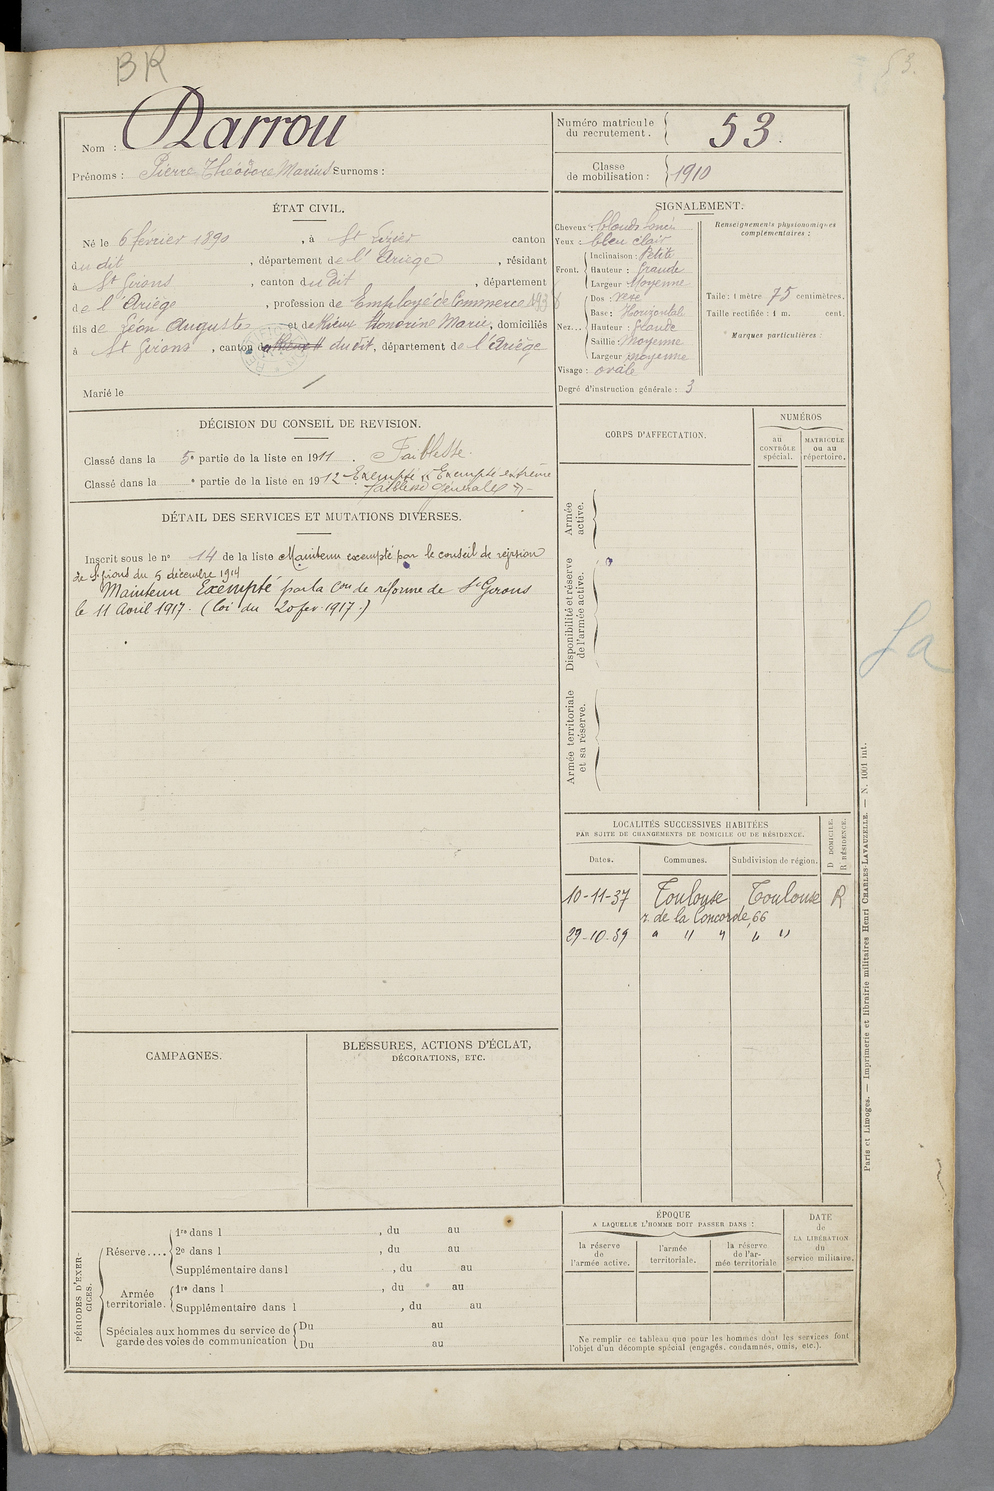 BR
53.
Nom : Darrou
Prénoms : Pierre Théodore Marius Surnoms :
Numéro matricule du recrutement. 53.
Classe de mobilisation : 1910
ÉTAT CIVIL.
Né le 6 février 1890, à St Lizier canton
du dit, département de l'Ariège, résidant
à St Girons, canton du dit, département
de l'Ariège, profession de Employé de Commerce
fils de Léon Auguste et de Rieux Honorine Marie, domiciliés
à St Girons, canton du dit, département de l'Ariège
Marié le /
SIGNALEMENT.
Cheveux : blonds foncé
Yeux : bleu clair
Front. Inclinaison : Petite
Hauteur : Grande
Largeur : Moyenne
Nez... Dos : vexe
Base : Horizontal
Hauteur : Grande
Saillie : Moyenne
Largeur : moyenne
Visage : ovale
Degré d'instruction générale : 3
Renseignements physionomiques
complémentaires :
Taille : 1 mètre 75 centimètres.
Taille rectifiée : 1 m. cent.
Marques particulières :
DÉCISION DU CONSEIL DE REVISION.
Classé dans la 5e partie de la liste en 1911. Faiblesse.
Classé dans la e partie de la liste en 1912 Exempté Exempté extrême
faiblesse générale
DÉTAIL DES SERVICES ET MUTATIONS DIVERSES.
Inscrit sous le n° 14 de la liste Maintenu exempté par le conseil de révision
de St Girons du 5 décembre 1914
Maintenu Exempté par la Con de réforme de St Girons
le 11 Avril 1917. (loi du 20 fev. 1917.)
CORPS D'AFFECTATION.
NUMÉROS
au CONTRÔLE spécial.
MATRICULE ou au répertoire.
Armée active.
Disponibilité et réserve de l'armée active.
Armée territoriale et sa réserve.
LOCALITÉS SUCCESSIVES HABITÉES
PAR SUITE DE CHANGEMENTS DE DOMICILE OU DE RÉSIDENCE.
Dates. Communes. Subdivision de région. D DOMICILE. R RÉSIDENCE.
10-11-37 Toulouse Toulouse R
r. de la Concorde, 66
29-10-39 " " " " "
CAMPAGNES.
BLESSURES, ACTIONS D'ÉCLAT,
DÉCORATIONS, ETC.
PÉRIODES D'EXERCICES.
Réserve.... 1re dans l , du au
2e dans l , du au
Supplémentaire dans l , du au
Armée territoriale. 1re dans l , du au
Supplémentaire dans l , du au
Spéciales aux hommes du service de garde des voies de communication
Du au
Du au
ÉPOQUE
A LAQUELLE L'HOMME DOIT PASSER DANS :
la réserve de l'armée active.
l'armée territoriale.
la réserve de l'armée territoriale
DATE de LA LIBÉRATION du service militaire.
Ne remplir ce tableau que pour les hommes dont les services font
l'objet d'un décompte spécial (engagés, condamnés, omis, etc.).
Paris et Limoges. — Imprimerie et librairie militaires Henri CHARLES-LAVAUZELLE. — N. 1001 int.